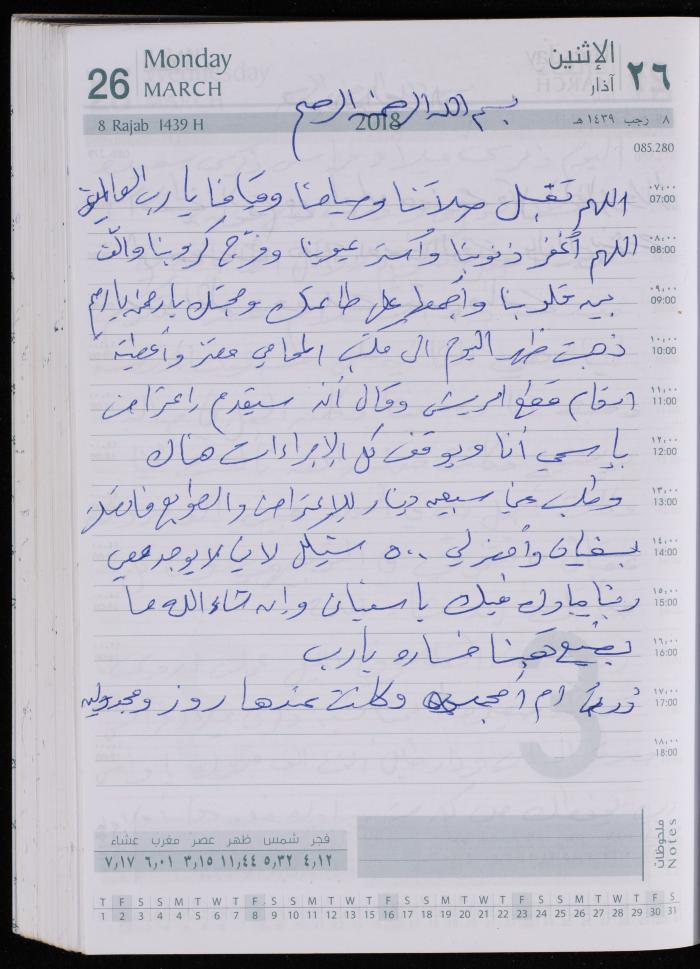 26
Monday
MARCH
الإثنين
آذار
٢٦
بسم الله الرحمن الرحيم
8 Rajab 1439 H
2018
٨ رجب ١٤٣٩ هـ
085.280
٠٧:٠٠
07:00
اللهم تقبل صلاتنا وصيامنا وقيامنا يا رب العالمين
٠٨:٠٠
08:00
اللهم أغفر ذنوبنا وأستر عيوبنا وفرّج كروبنا وألّف
٠٩:٠٠
09:00
بين قلوبنا وأجمعها على طاعتك ومحبتك يا رحمن يا رحيم
١٠:٠٠
10:00
ذهبت ظهر اليوم الى مكتب المحامي معتز وأعطيته
١١:٠٠
11:00
ارقام قطع وقال أنه سيقدم إعتراض
١٢:٠٠
12:00
بإسمي أنا ويوقف كل الإجراءات هناك
١٣:٠٠
13:00
وطلب مني سبعين دينار للإعتراض والطوابع
١٤:٠٠
14:00
بسفيان ٥٠٠ شيكل لأني لا يوجد معي
١٥:٠٠
15:00
ربنا يبارك فيك يا سفيان وإن شاء الله ما
١٦:٠٠
16:00
بضيع خساره يا رب
١٧:٠٠
17:00
زرت ام أمجد وكانت عندها روز ومجدولين
١٨:٠٠
18:00
3
فجر شمس ظهر عصر مغرب عشاء
٤,١٢ ٥,٣٢ ١١,٤٤ ٣,١٥ ٦,٠١ ٧,١٧
ملحوظات
Notes
T F S S M T W T F S S M T W T F S S M T W T F S S M T W T F S
1 2 3 4 5 6 7 8 9 10 11 12 13 14 15 16 17 18 19 20 21 22 23 24 25 26 27 28 29 30 31